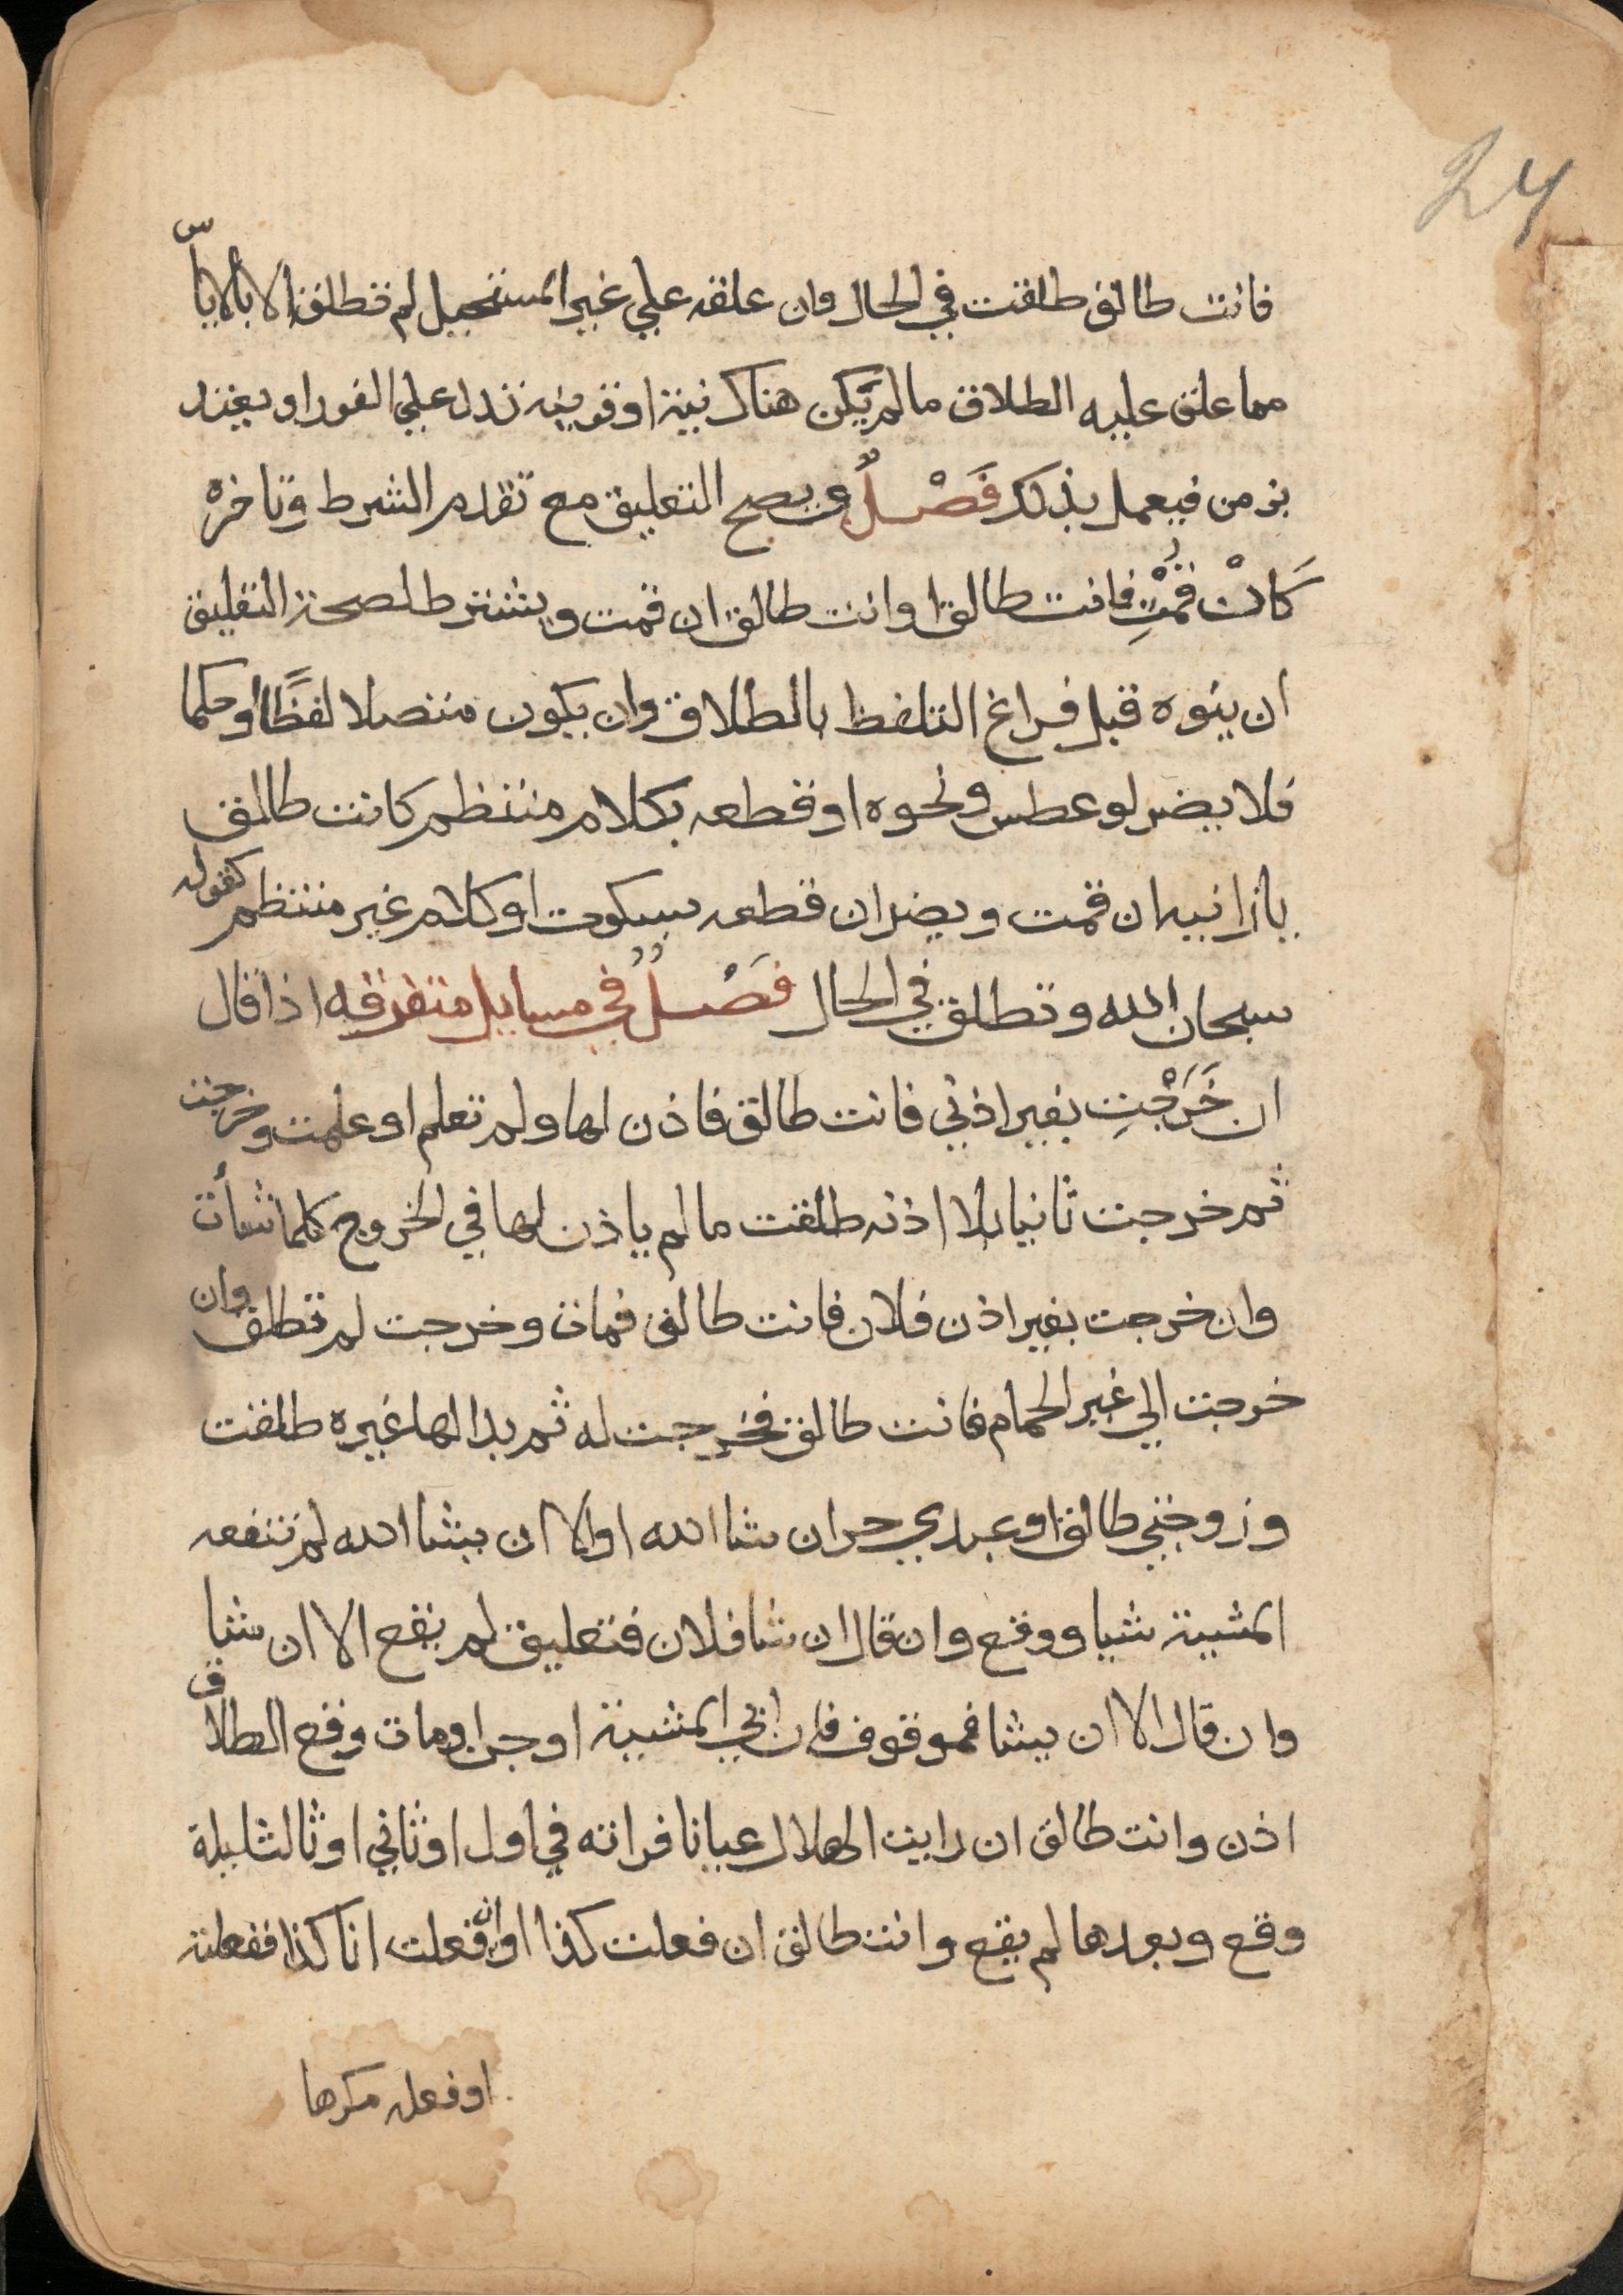 24
فانت طالق طلقت في الحال وان علقه علي غير المستحيل لم تطلق الا بالاياس
مما علق عليه الطلاق ما لم يكن هناك نية او قرينه تدل علي الفور او يقيد
بزمن فيعمل بذلك فَصْلٌ ويصح التعليق مع تقدم الشرط وتاخره
كَانْ قُمْتِ فانت طالق او انت طالق ان قمت ويشترط لصحة التعليق
ان ينوه قبل فراغ التلفظ بالطلاق وان يكون متصلا لفظًا أو حكما
فلا يضر لو عطس ونحوه او قطعه بكلام منتظم كانت طالق
يا زانيه ان قمت ويضر ان قطعه بسكوت او كلام غير منتظم كقوله
سبحان الله وتطلق في الحال فَصْلٌ في مسايل متفرقه اذا قال
ان خَرَجْتِ بغير اذني فانت طالق فاذن لها ولم تعلم او علمت وخرجت
ثم خرجت ثانيا بلا اذنه طلقت ما لم ياذن لها في الخروج كلما شأت
وان خرجت بغير اذن فلان فانت طالق فمات وخرجت لم تطلق وان
خرجت الي غير الحمام فانت طالق فخرجت له ثم بدا لها غيره طلقت
وزوجتي طالق او عبدي حر ان شا الله او الا ان يشا الله لم تنفعه
المشيية شيا ووقع وان قال ان شا فلان فتعليق لم يقع الا ان شا
وان قال الا ان يشا فموقوف فان ابي المشيية او جن او مات وقع الطلاق
اذن وانت طالق ان رايت الهلال عيانا فراته في اول او ثاني او ثالث ليلة
وقع وبعدها لم يقع وانت طالق ان فعلت كذا او ان فعلت انا كذا ففعلته
او فعله مكرها